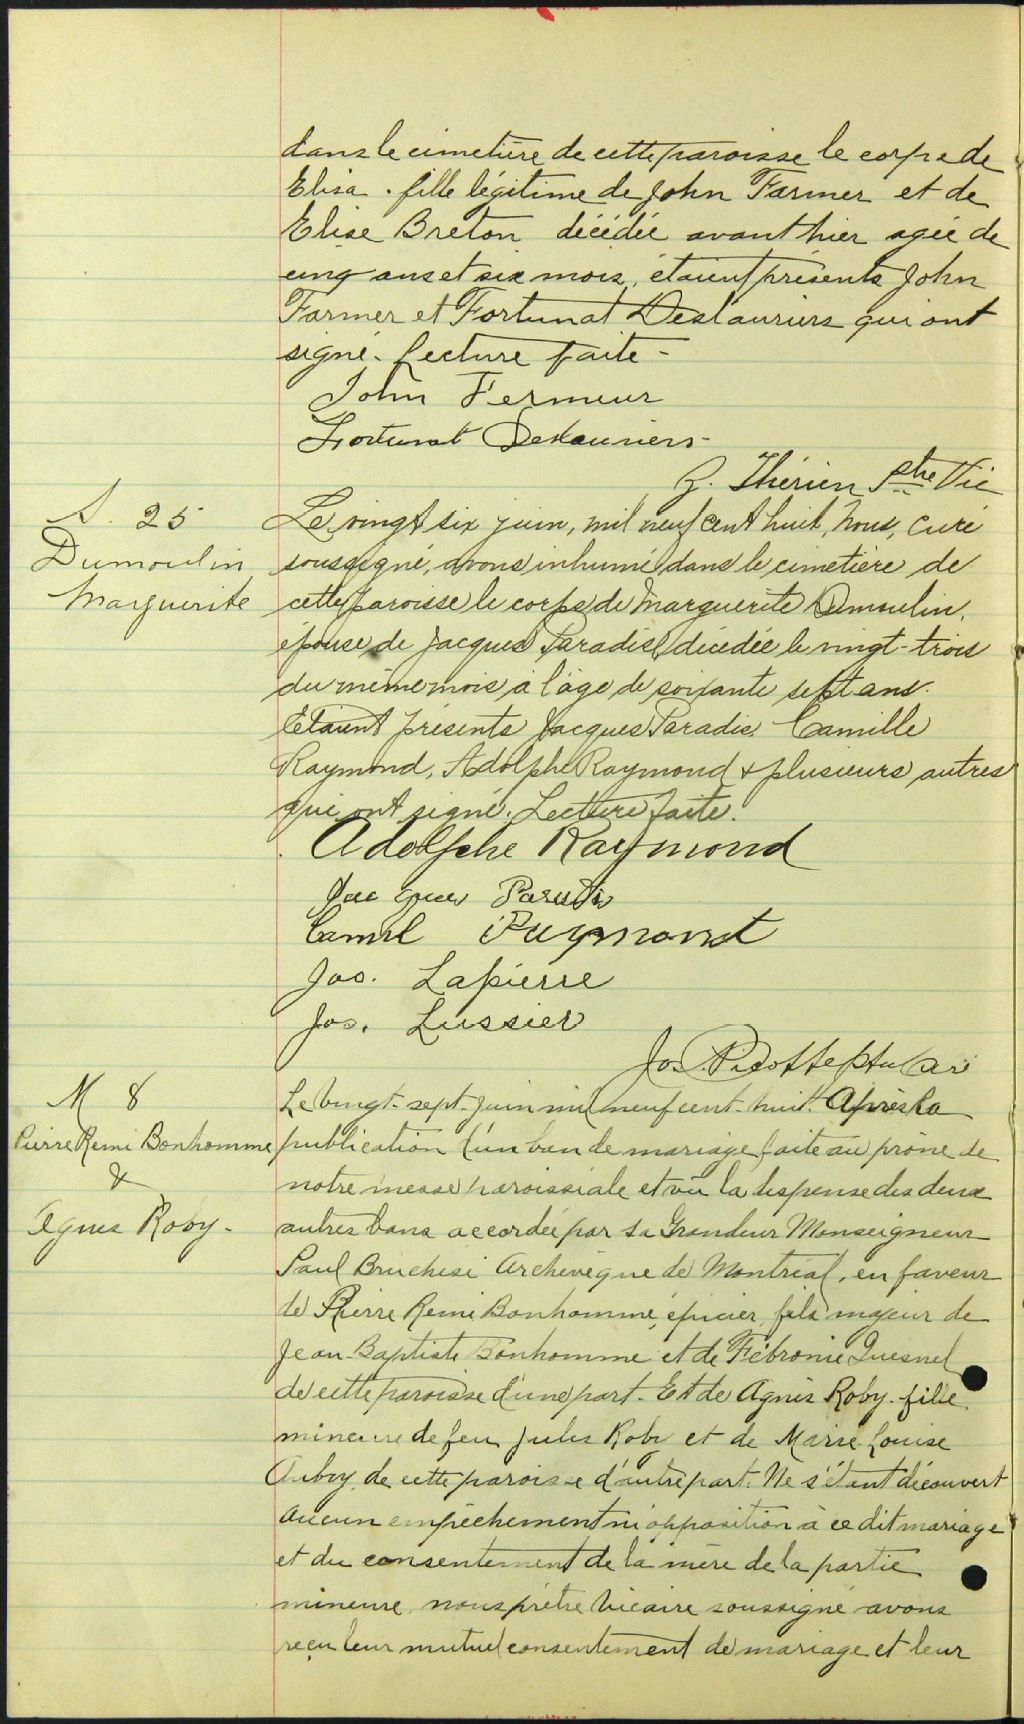 dans le cimetière de cette paroisse le corps de
Elisa. fille légitime de John Farmer et de
Elise Breton décédée avant hier agée de
cinq ans et six mois, étaient présents John
Farmer et Fortunat Deslauriers qui ont
signé. Lecture faite -
John Fermeur
Fortunat Deslauriers -
Z. Thérien Ptre Vic
S. 25
Dumoulin
Marguerite
Le vingt six juin, mil neuf cent huit, Nous, curé
soussigné, avons inhumé dans le cimetière de
cette paroisse le corps de Marguerite Dumoulin,
épouse de Jacques Paradis, décédée le vingt-trois
du même mois à l'âge de soixante sept ans.
Etaient présents Jacques Paradis, Camille
Raymond, Adolphe Raymond & plusieurs autres
qui ont signé. Lecture faite.
Adolphe Raymond
Jacques Paradis
Camil Raymond
Jos. Lapierre
Jos. Lussier
Jos. Picotte ptre Curé
M 8
Pierre Remi Bonhomme
&
Agnes Roby -
Le vingt-sept-juin mil neuf cent-huit. Après la
publication d'un ban de mariage faite au prône de
notre messe paroissiale et vû la dispense des deux
autres bans accordée par Sa Grandeur Monseigneur
Paul Bruchesi Archevêque de Montréal, en faveur
de Pierre Remi Bonhomme, épicier, fils majeur de
Jean-Baptiste Bonhomme et de Fébronie Quesnel
de cette paroisse d'une part. Et de Agnès Roby. fille
mineure de feu Jules Roby et de Marie-Louise
Aubry, de cette paroisse d'autre part. Ne s'étant découvert
aucun empêchement ni opposition à ce dit mariage
et du consentement de la mère de la partie
mineure, nous prêtre Vicaire soussigné avons
reçu leur mutuel consentement de mariage et leur